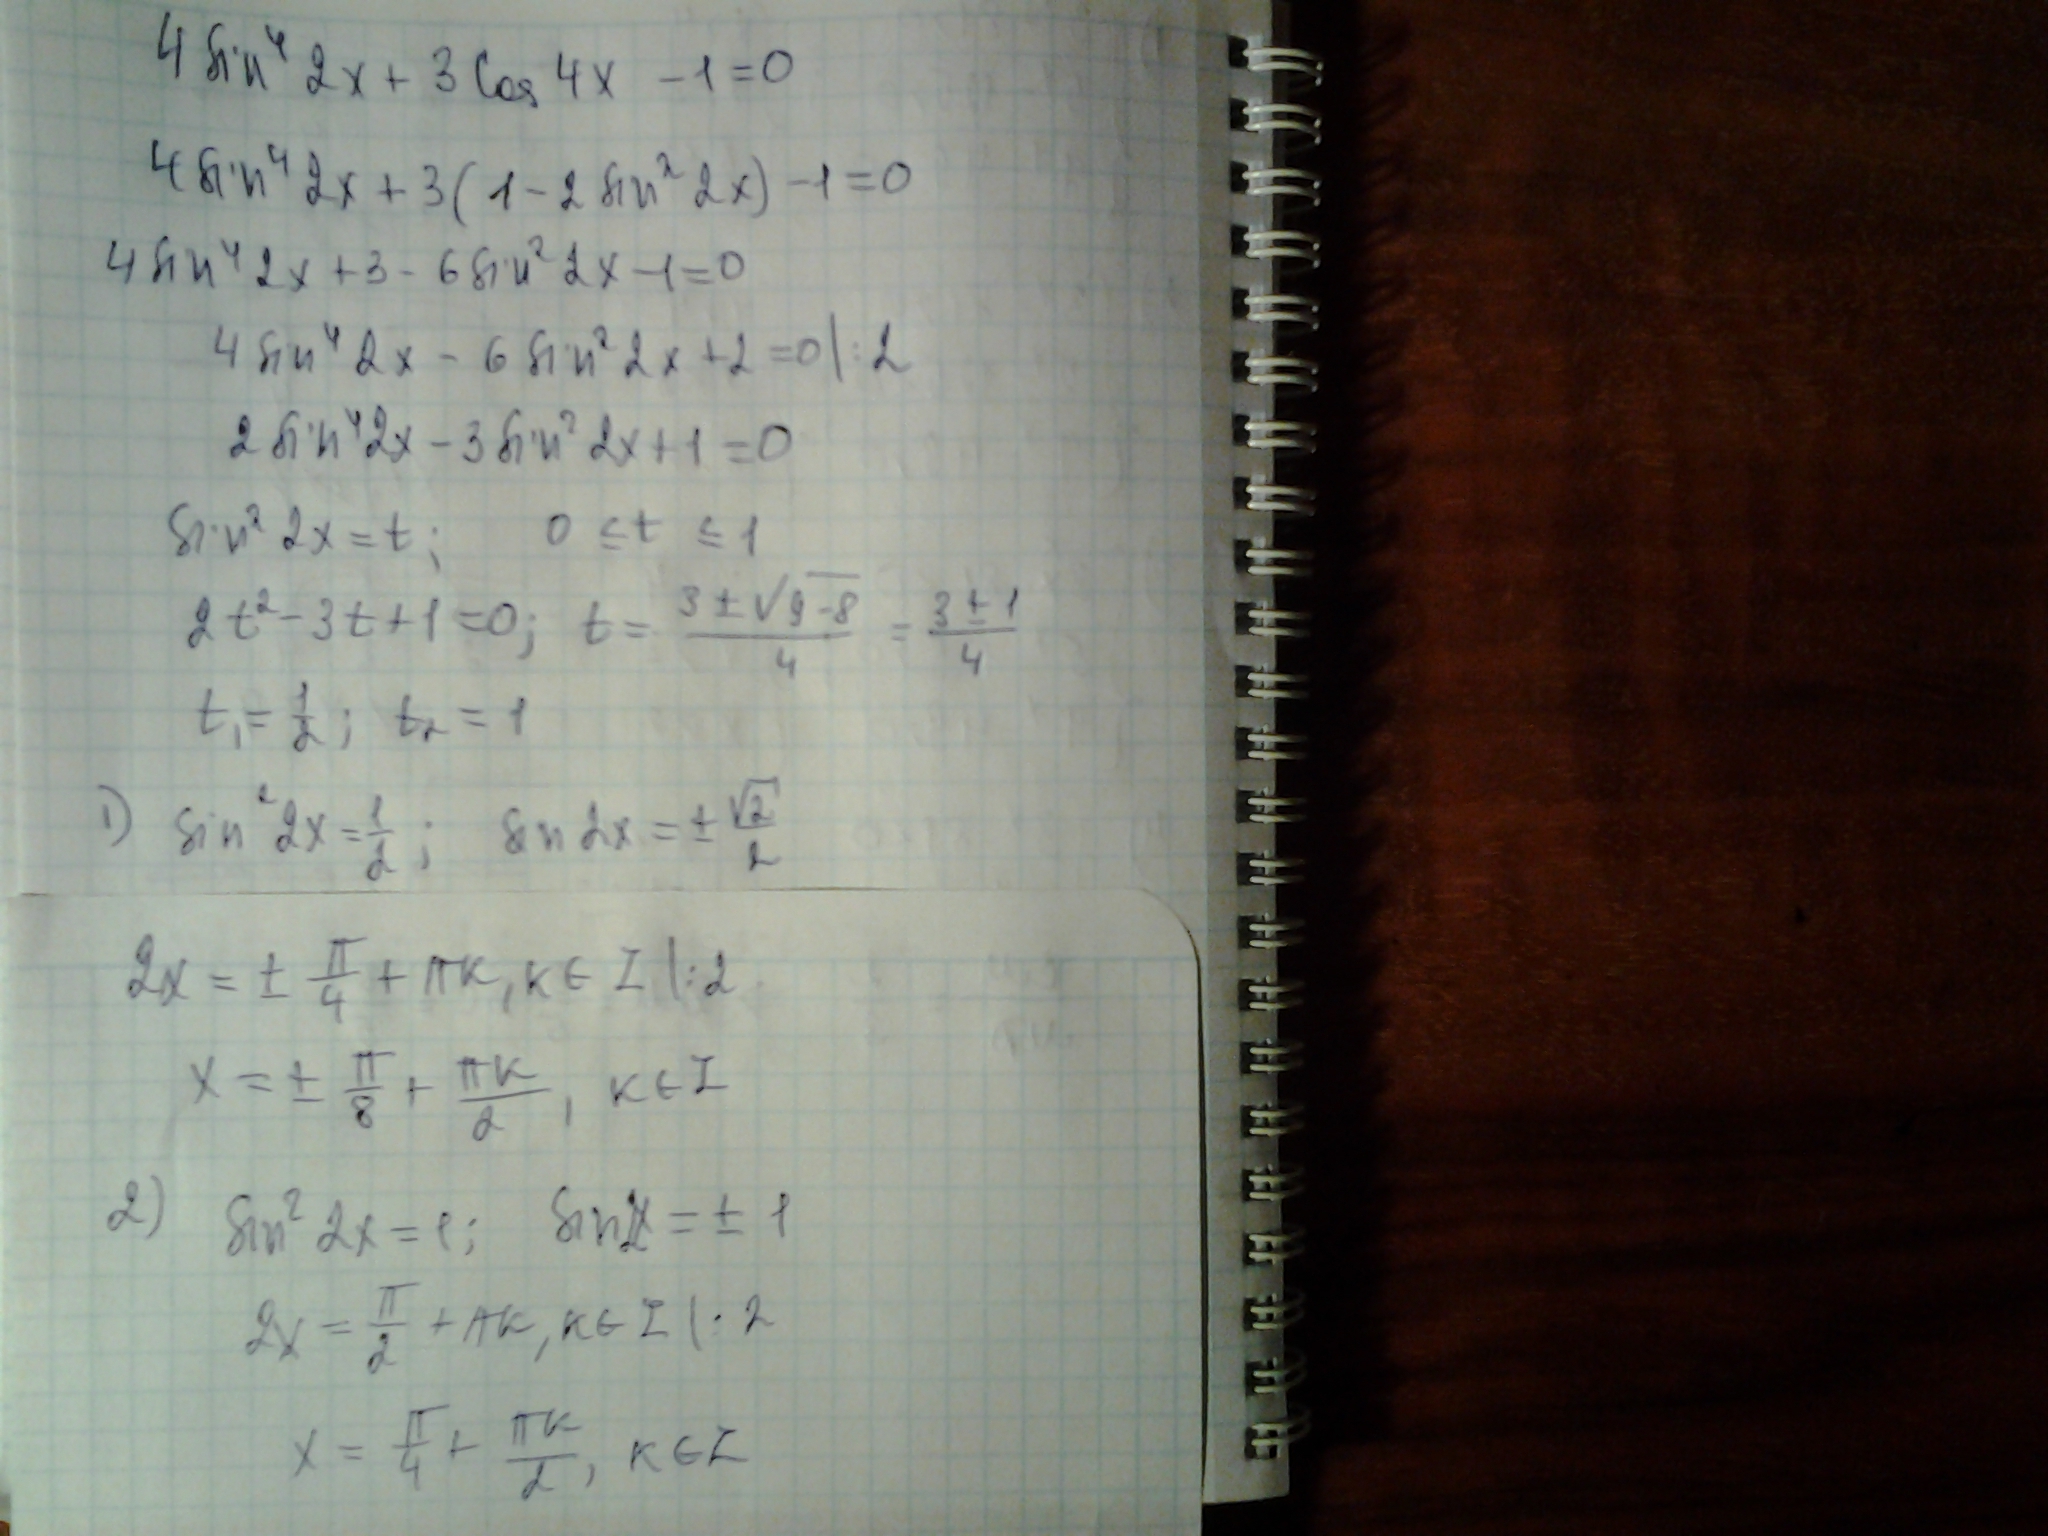 4 sin⁴ 2x + 3 cos 4x - 1 = 0
4 sin⁴ 2x + 3(1 - 2 sin² 2x) - 1 = 0
4 sin⁴ 2x + 3 - 6 sin² 2x - 1 = 0
4 sin⁴ 2x - 6 sin² 2x + 2 = 0 |:2
2 sin⁴ 2x - 3 sin² 2x + 1 = 0
sin² 2x = t; 0 ≤ t ≤ 1
2t² - 3t + 1 = 0; t = (3 ± √(9 - 8))/4 = (3 ± 1)/4
t₁ = 1/2; t₂ = 1
1) sin² 2x = 1/2; sin 2x = ± √2/2
2x = ± π/4 + πk, k ∈ Z |:2
x = ± π/8 + πk/2, k ∈ Z
2) sin² 2x = 1; sin 2x = ± 1
2x = π/2 + πk, k ∈ Z |:2
x = π/4 + πk/2, k ∈ Z